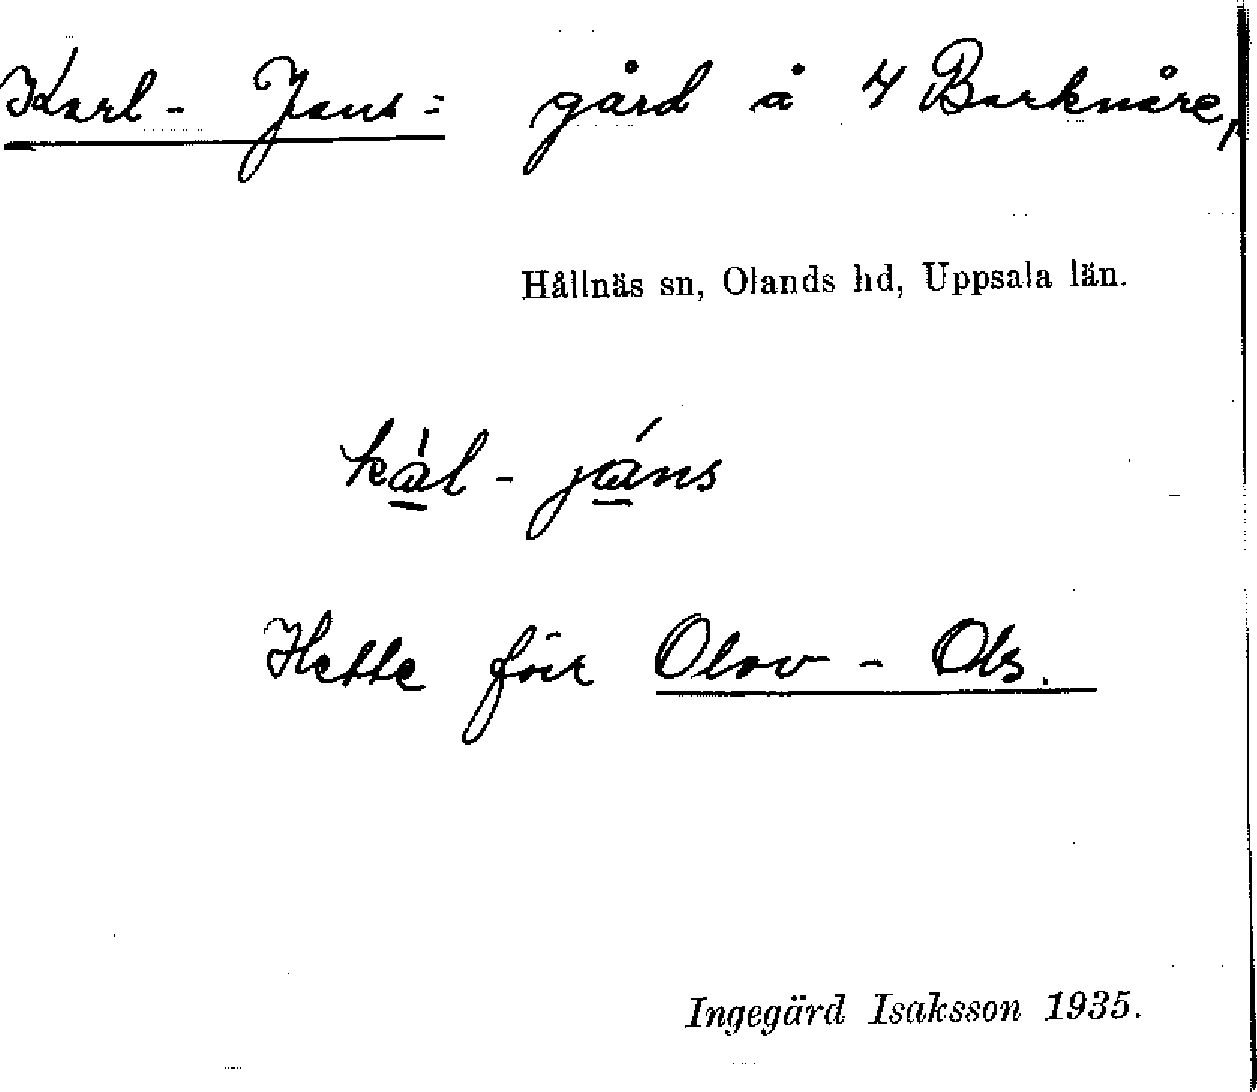 Karl- Jans= gård å 4 Barknåre,
Hållnäs sn, Olands hd, Uppsala län.
kàl - jáns
Hette förr Olov - Ols.
Ingegärd Isaksson 1935.